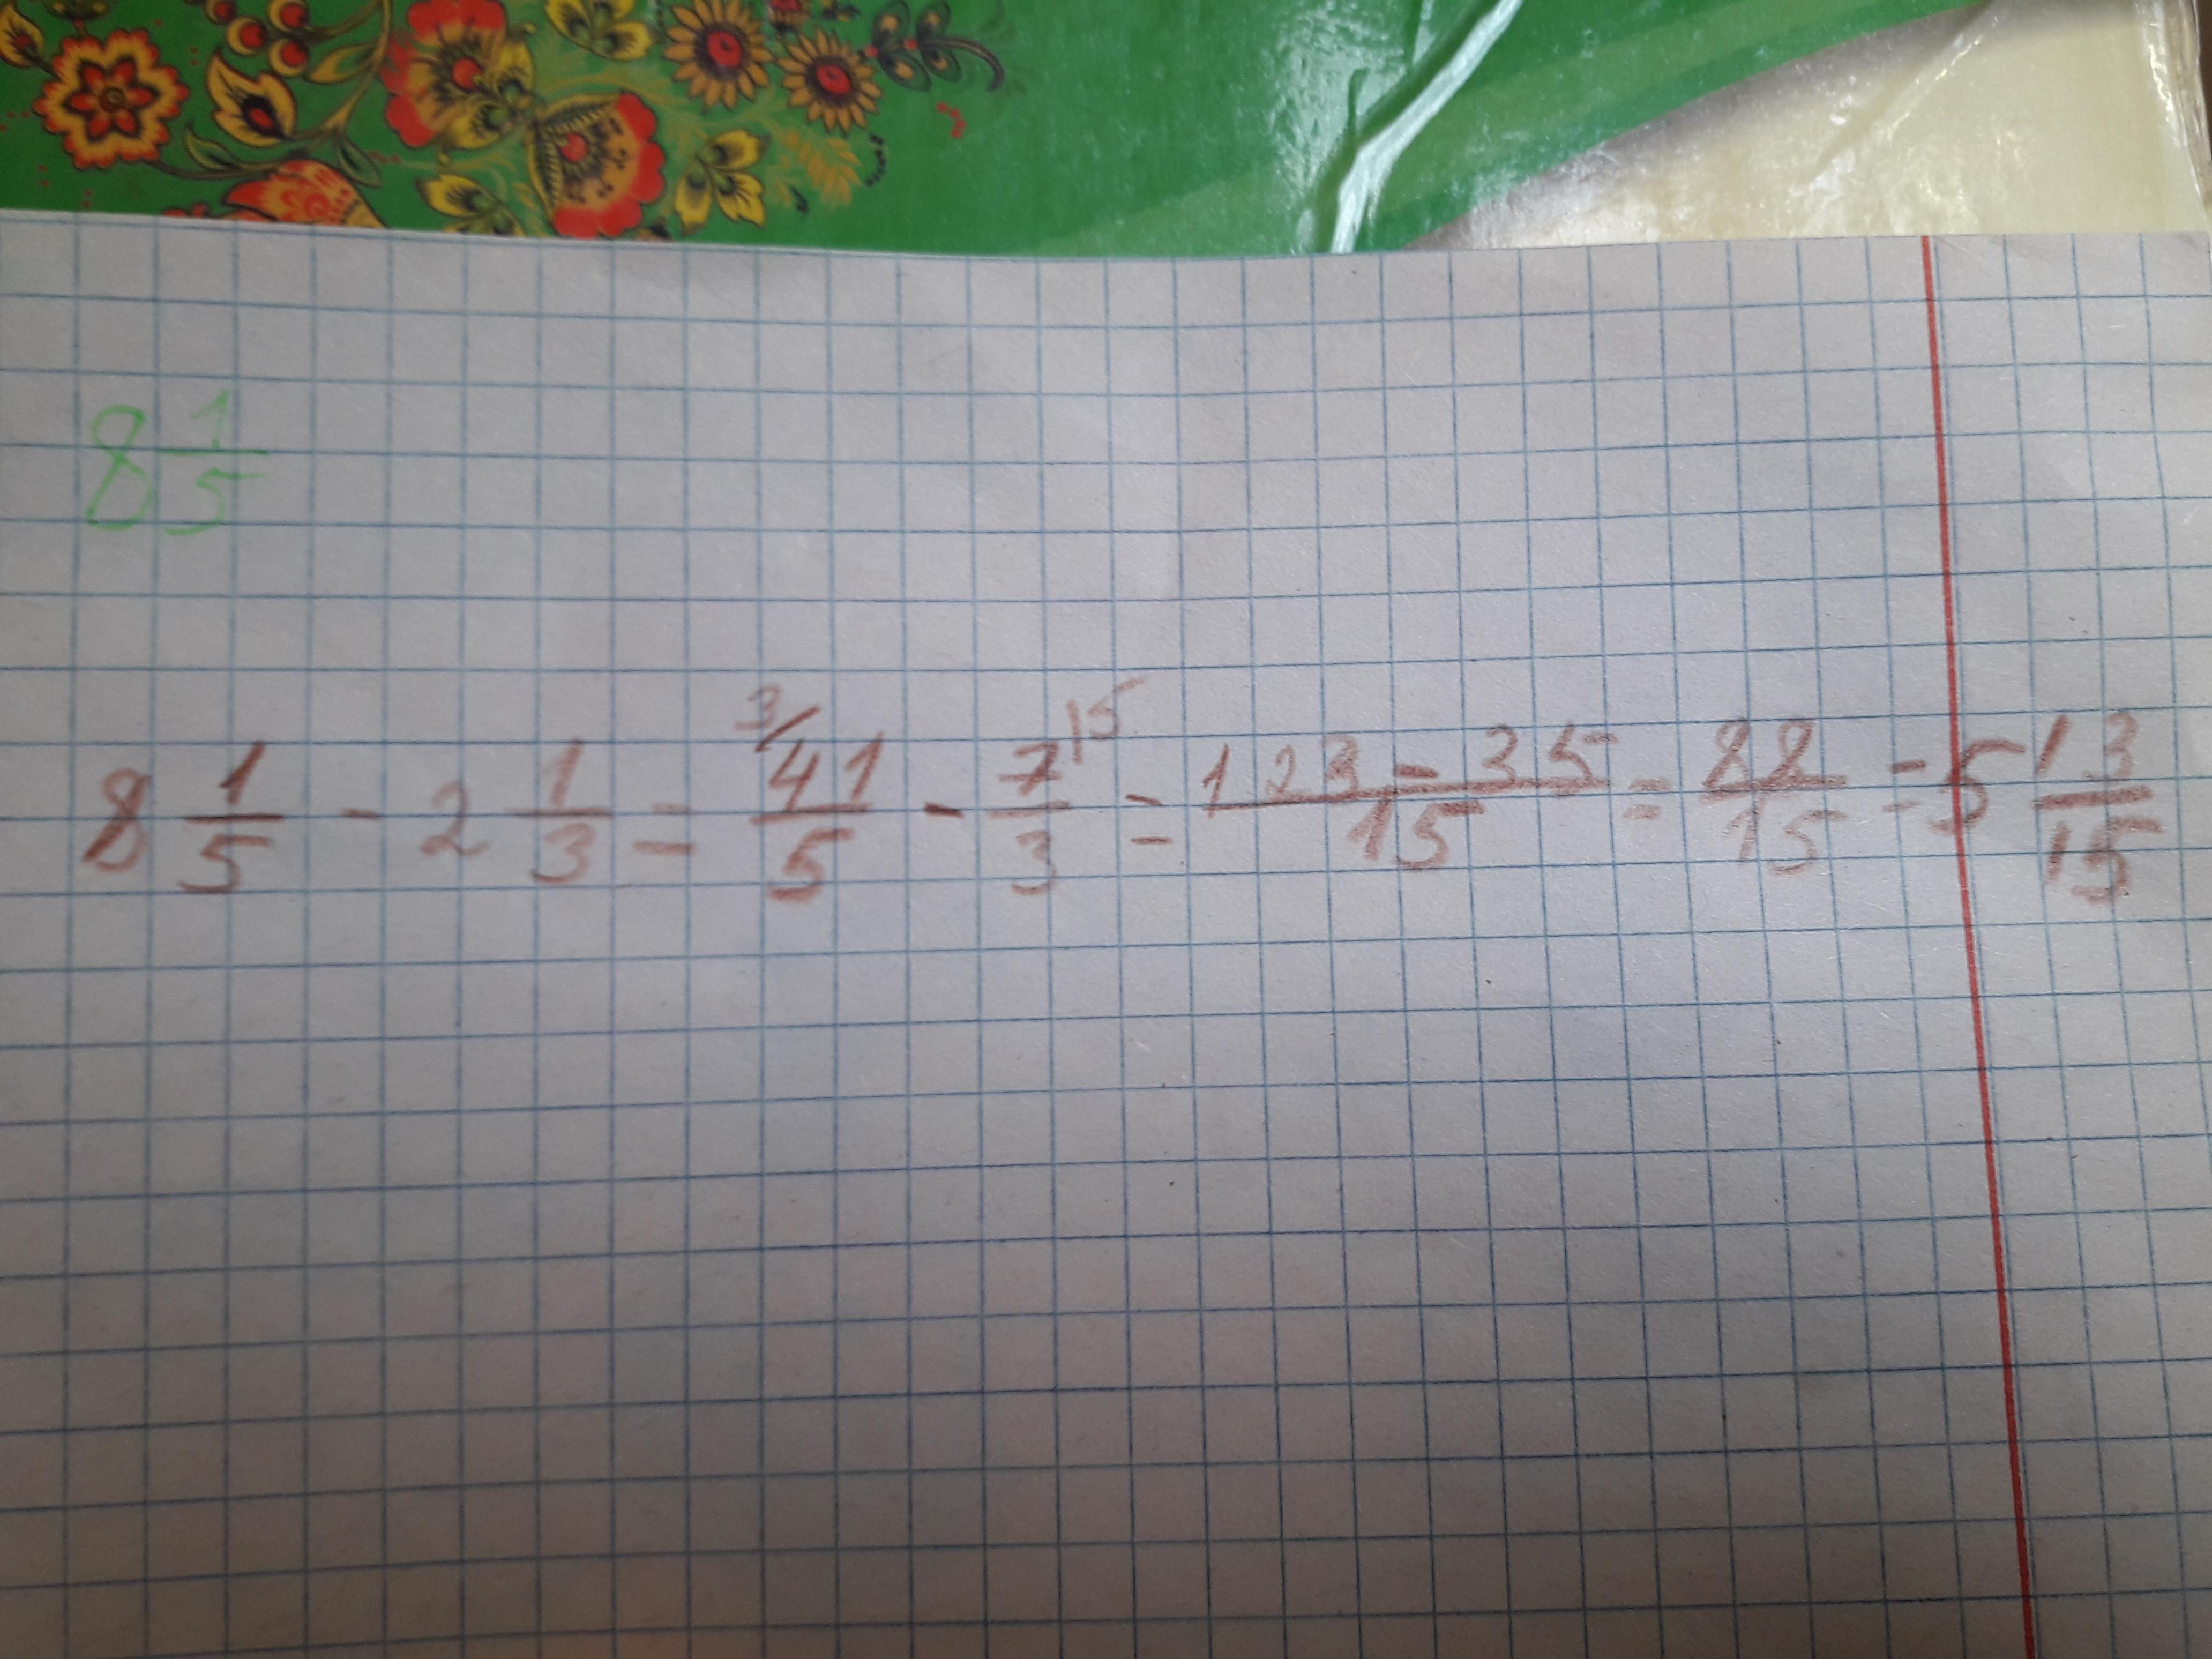 8 1/5
8 1/5 - 2 1/3 = 3/ 41/5 - 7/3 |5 = 123-35/15 = 88/15 = 5 13/15